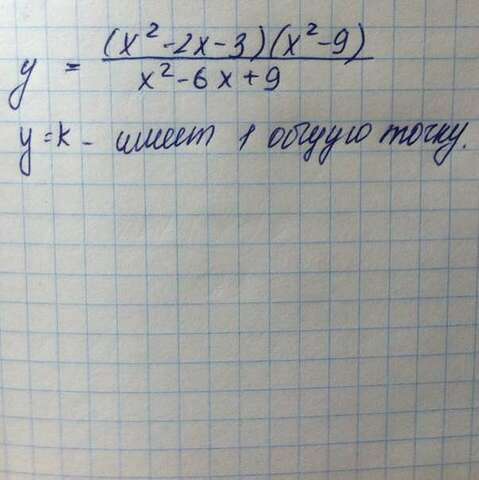 y = (x² - 2x - 3)(x² - 9) / x² - 6x + 9
y = k - имеет 1 общую точку.